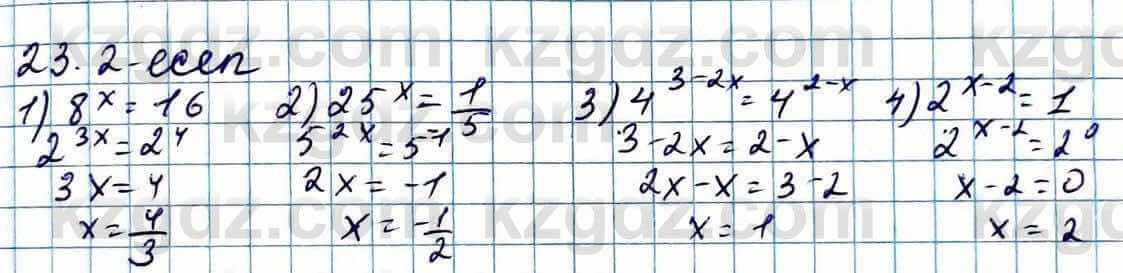 23.2-есеп
1) 8^x = 16
2^{3x} = 2^4
3x = 4
x = 4/3
2) 25^x = 1/5
5^{2x} = 5^{-1}
2x = -1
x = -1/2
3) 4^{3-2x} = 4^{2-x}
3-2x = 2-x
2x-x = 3-2
x = 1
4) 2^{x-2} = 1
2^{x-2} = 2^0
x-2 = 0
x = 2
kzgdz.com kzgdz.com kzgdz.com
kzgdz.com kzgdz.com
kzgdz.com kzgdz.com kzgdz.com